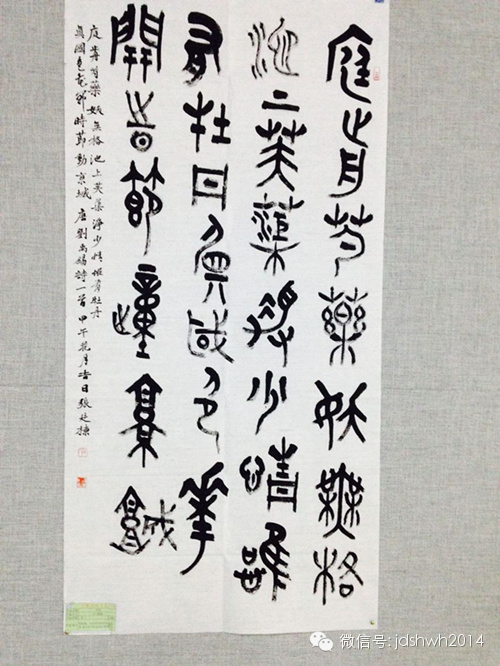 庭前芍藥妖無格
池上芙蕖淨少情唯
有牡丹真國色花
開時節動京城
庭前芍藥妖無格池上芙蕖淨少情惟有牡丹
真國色花開時節動京城 唐劉禹錫詩一首 甲午花月吉日張廷
微信号: jdshwh2014